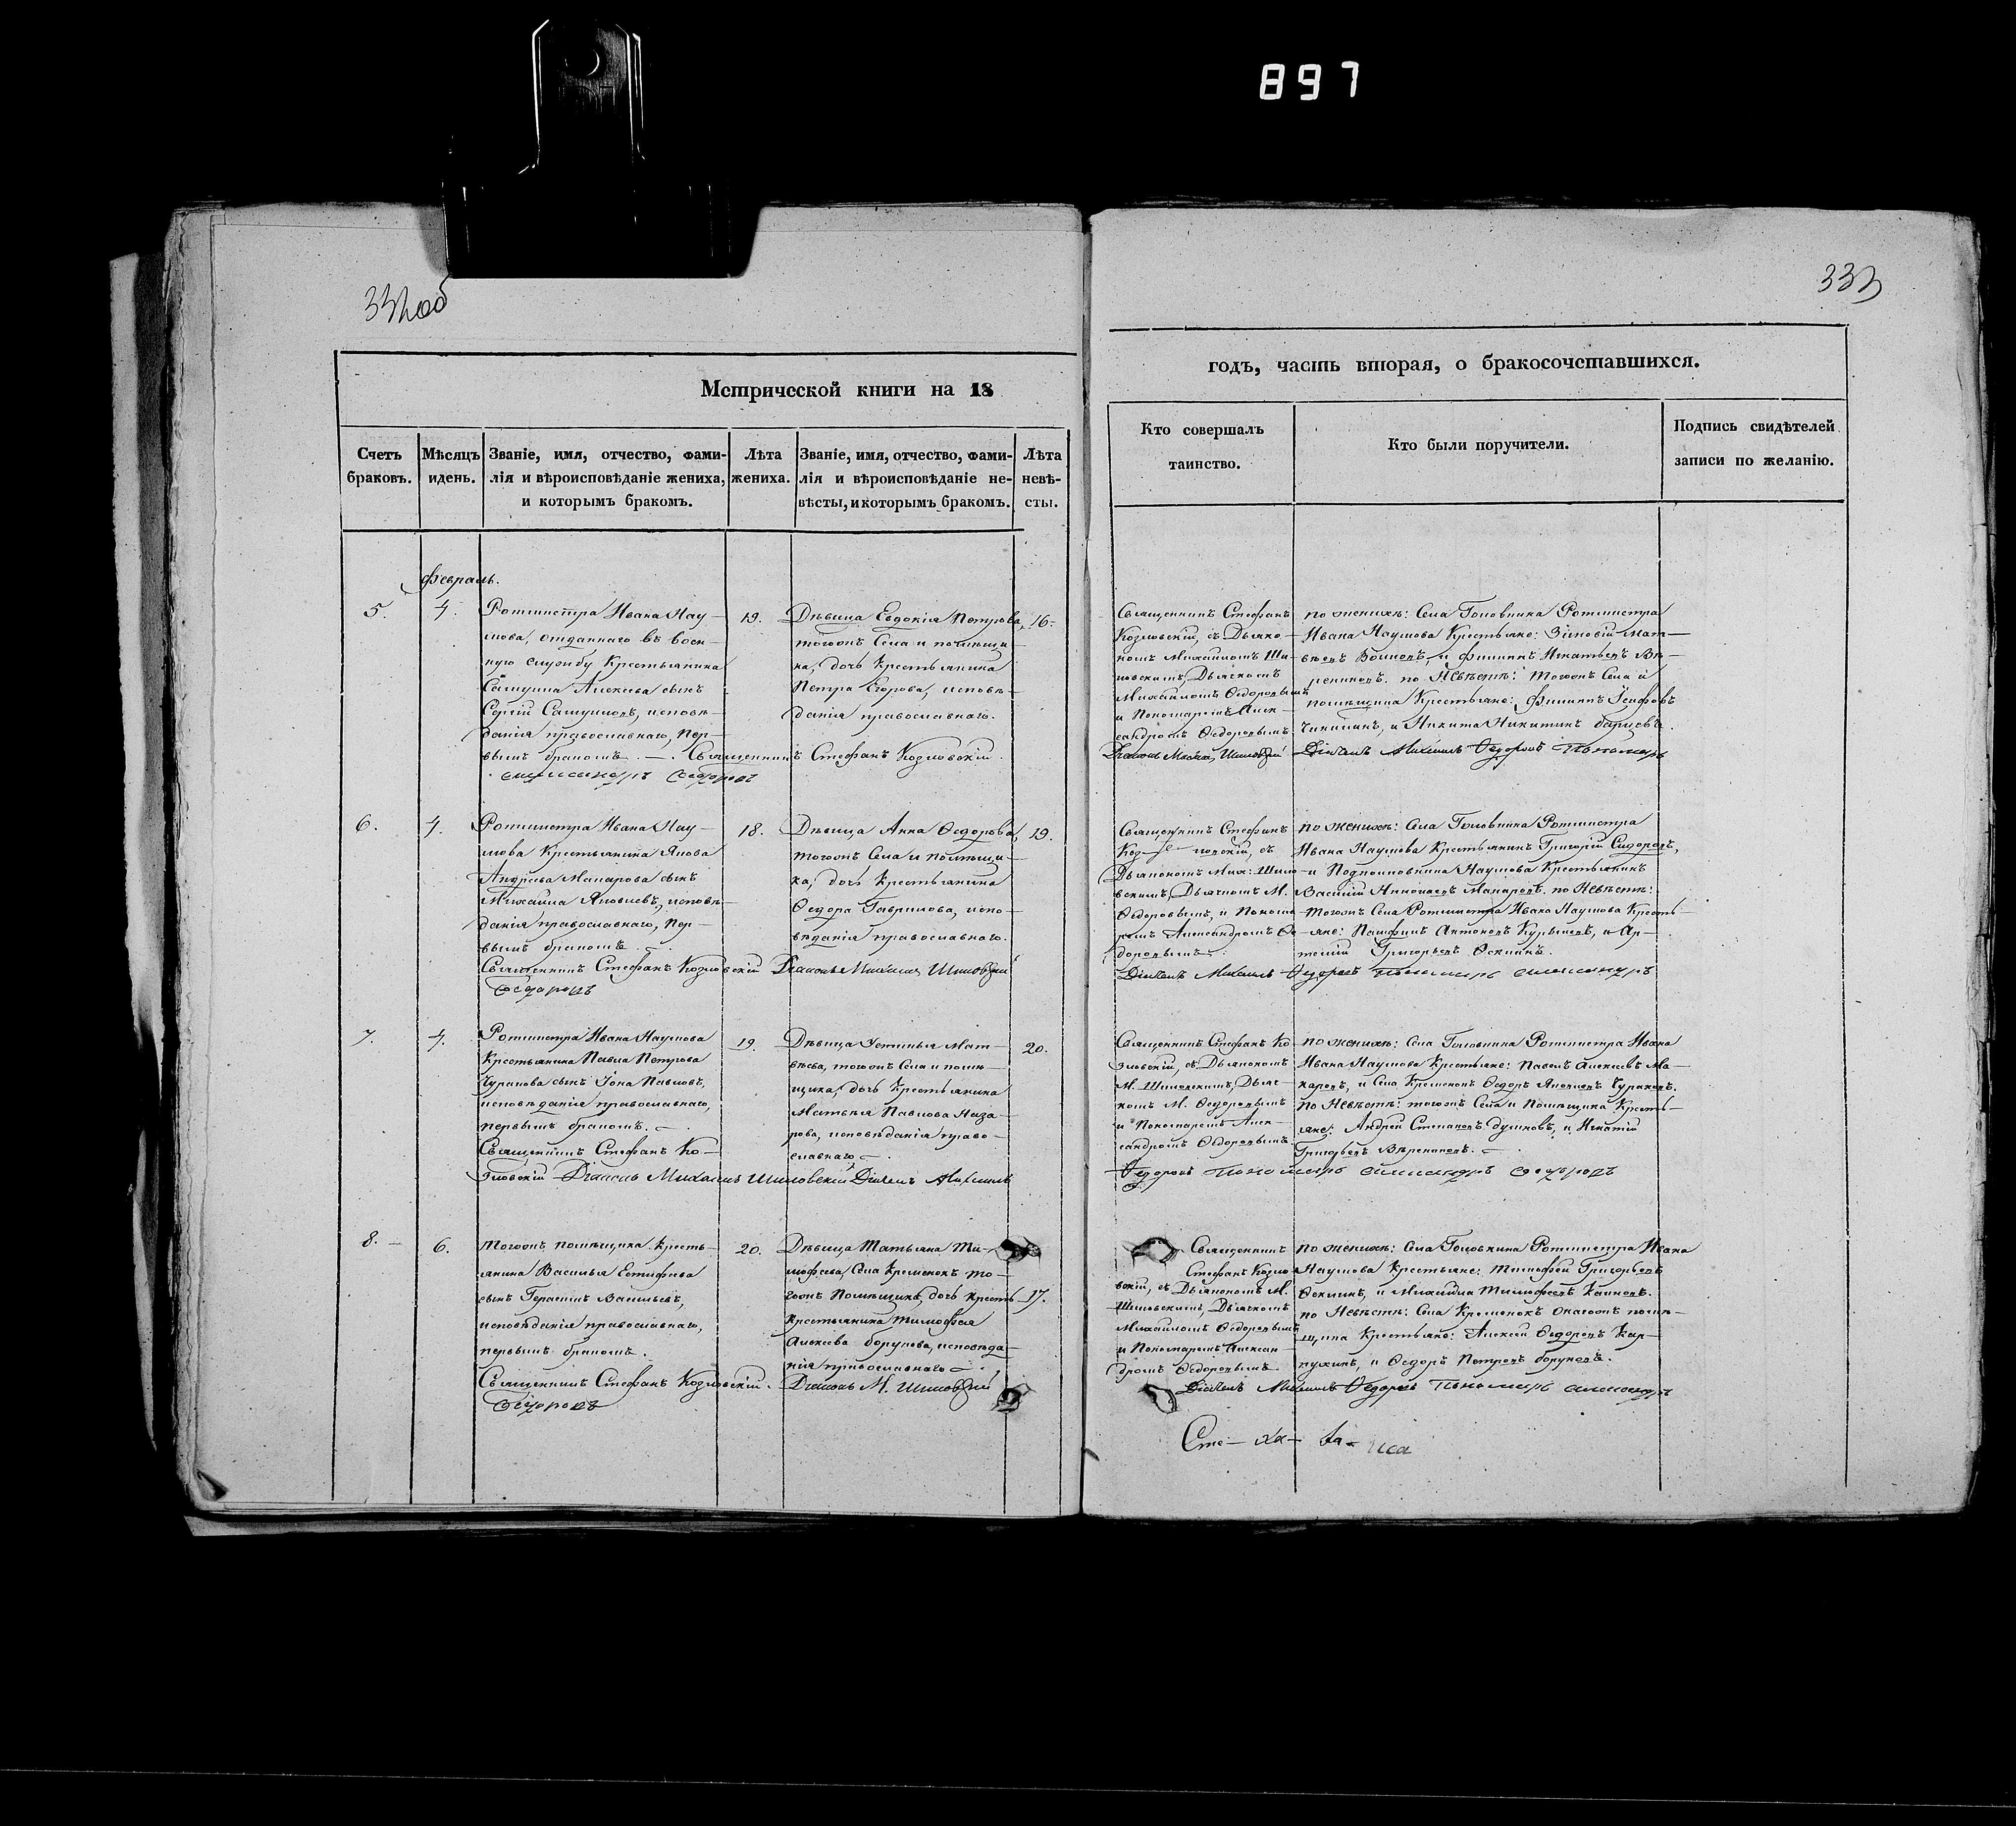 897
332об
333
Метрической книги на 18
годъ, часть вторая, о бракосочетавшихся.
Счетъ браковъ.
Мѣсяцъ идень.
Званіе, имя, отчество, фами-
лія и вѣроисповѣданіе жениха,
и которымъ бракомъ.
Лѣта
жениха.
Званіе, имя, отчество, фами-
лія и вѣроисповѣданіе не-
вѣсты, и которымъ бракомъ.
Лѣта
невѣ-
сты.
Кто совершалъ
таинство.
Кто были поручители.
Подпись свидѣтелей
записи по желанію.
Февраль.
5.
4.
Ротмистра Ивана Нау-
мова, отданнаго въ воен-
ную службу Крестьянина
Самуила Алексѣева сынъ
Сергій Самуиловъ, исповѣ-
данія православнаго, пер-
вымъ бракомъ. Священникъ Стефанъ Козловскій.
Александръ Ѳедоровъ
19.
Дѣвица Евдокія Петрова,
тогожъ Села и помѣщи-
ка, дочь Крестьянина
Петра Егорова, исповѣ-
данія православнаго.
16.
Священникъ Стефанъ
Козловскій, съ Діако-
номъ Михаиломъ Ши-
ловскимъ, Дьячкомъ
Михаиломъ Ѳедоровымъ
и Пономаремъ Алек-
сандромъ Ѳедоровымъ.
Діаконъ Михаилъ Шиловскій
по женихѣ: Села Головкина Ротмистра
Ивана Наумова Крестьяне: Зиновій Мат-
вѣевъ, и Филиппъ Игнатьевъ Вѣ-
рениновъ. по Невѣстѣ: тогожъ Села и
помѣщика Крестьяне: Филиппъ Іосифовъ
и Никита Никитинъ
Дьячекъ Михаилъ Ѳедоровъ Пономарь
6.
4.
Ротмистра Ивана Нау-
мова Крестьянина Якова
Андреева Макарова сынъ
Михаилъ Яковлевъ, исповѣ-
данія православнаго, пер-
вымъ бракомъ.
Священникъ Стефанъ Козловскій Діаконъ Михаилъ Шиловскій
Ѳедоровъ
18.
Дѣвица Анна Ѳедорова,
тогожъ Села и помѣщи-
ка, дочь Крестьянина
Ѳедора Гаврилова, испо-
вѣданія православнаго.
19.
Священникъ Стефанъ
Коз-ловскій, съ
Діакономъ Мих: Шило-
вскимъ, Дьячкомъ М.
Ѳедоровымъ, и Понома-
ремъ Александромъ Ѳе-
доровымъ.
по женихѣ: Села Головкина Ротмистра
Ивана Наумова Крестьянинъ Григорій Сидоровъ,
и Подполковника Наумова Крестьянинъ
Василій Николаевъ Макаровъ. по Невѣстѣ:
тогожъ Села Ротмистра Ивана Наумова Кресть-
яне: Антоновъ, и Ар-
темій Григорьевъ Ѳокинъ.
Дьячекъ Михаилъ Ѳедоровъ Пономарь Александръ
7.
4.
Ротмистра Ивана Наумова
Крестьянина Павла Петрова
Чуракова сынъ Іона Павловъ,
исповѣданія православнаго,
первымъ бракомъ.
Священникъ Стефанъ Ко-
зловскій Діаконъ Михаилъ Шиловскій Дьячекъ Михаилъ
19.
Дѣвица Устинья Мат-
вѣева, тогожъ Села и помѣ-
щика, дочь Крестьянина
Матвѣя Павлова Наза-
рова, исповѣданія право-
славнаго.
20.
Священникъ Стефанъ Ко-
зловскій, съ Діакономъ
М. Шиловскимъ, Дьяч-
комъ М. Ѳедоровымъ
и Пономаремъ Алек-
сандромъ Ѳедоровымъ.
Ѳедоровъ Пономарь Александръ Ѳедоровъ
по женихѣ: Села Головкина Ротмистра Ивана
Ивана Наумова Крестьяне: Павелъ Алексѣевъ Ма-
каровъ, и Села Кременокъ Ѳедоръ Яковлевъ Чураковъ.
по Невѣстѣ: тогожъ Села и Помѣщика Кресть-
яне: Андрей Степановъ, и Игнатій
Григорьевъ Вѣрениновъ.
8.
6.
Тогожъ помѣщика Кресть-
янина Василья Евтифеева
сынъ Герасимъ Васильевъ,
исповѣданія православнаго,
первымъ бракомъ.
Священникъ Стефанъ Козловскій. Діаконъ М. Шиловскій
Ѳедоровъ
20.
Дѣвица Татьяна Ти-
мофеева, Села Кременокъ то-
гожъ Помѣщика, дочь Кресть-
Крестьянина Тимофея
Алексѣева Борунова, исповѣда-
нія православнаго.
17.
Священникъ
Стефанъ Козло-
вскій, съ Діакономъ М.
Шиловскимъ, Дьячкомъ
Михаиломъ Ѳедоровымъ
и Пономаремъ Алексан-
дромъ Ѳедоровымъ.
по женихѣ: Села Головкина Ротмистра Ивана
Наумова Крестьяне: Тимофей Григорьевъ
Ѳокинъ, и Михаилъ Тимофеевъ
по Невѣстѣ: Села Кременокъ онагожъ помѣ-
щика Крестьяне: Алексѣй Ѳедоровъ Кар-
пухинъ, и Ѳедоръ Петровъ Боруновъ.
Дьячекъ Михаилъ Ѳедоровъ Пономарь Александръ